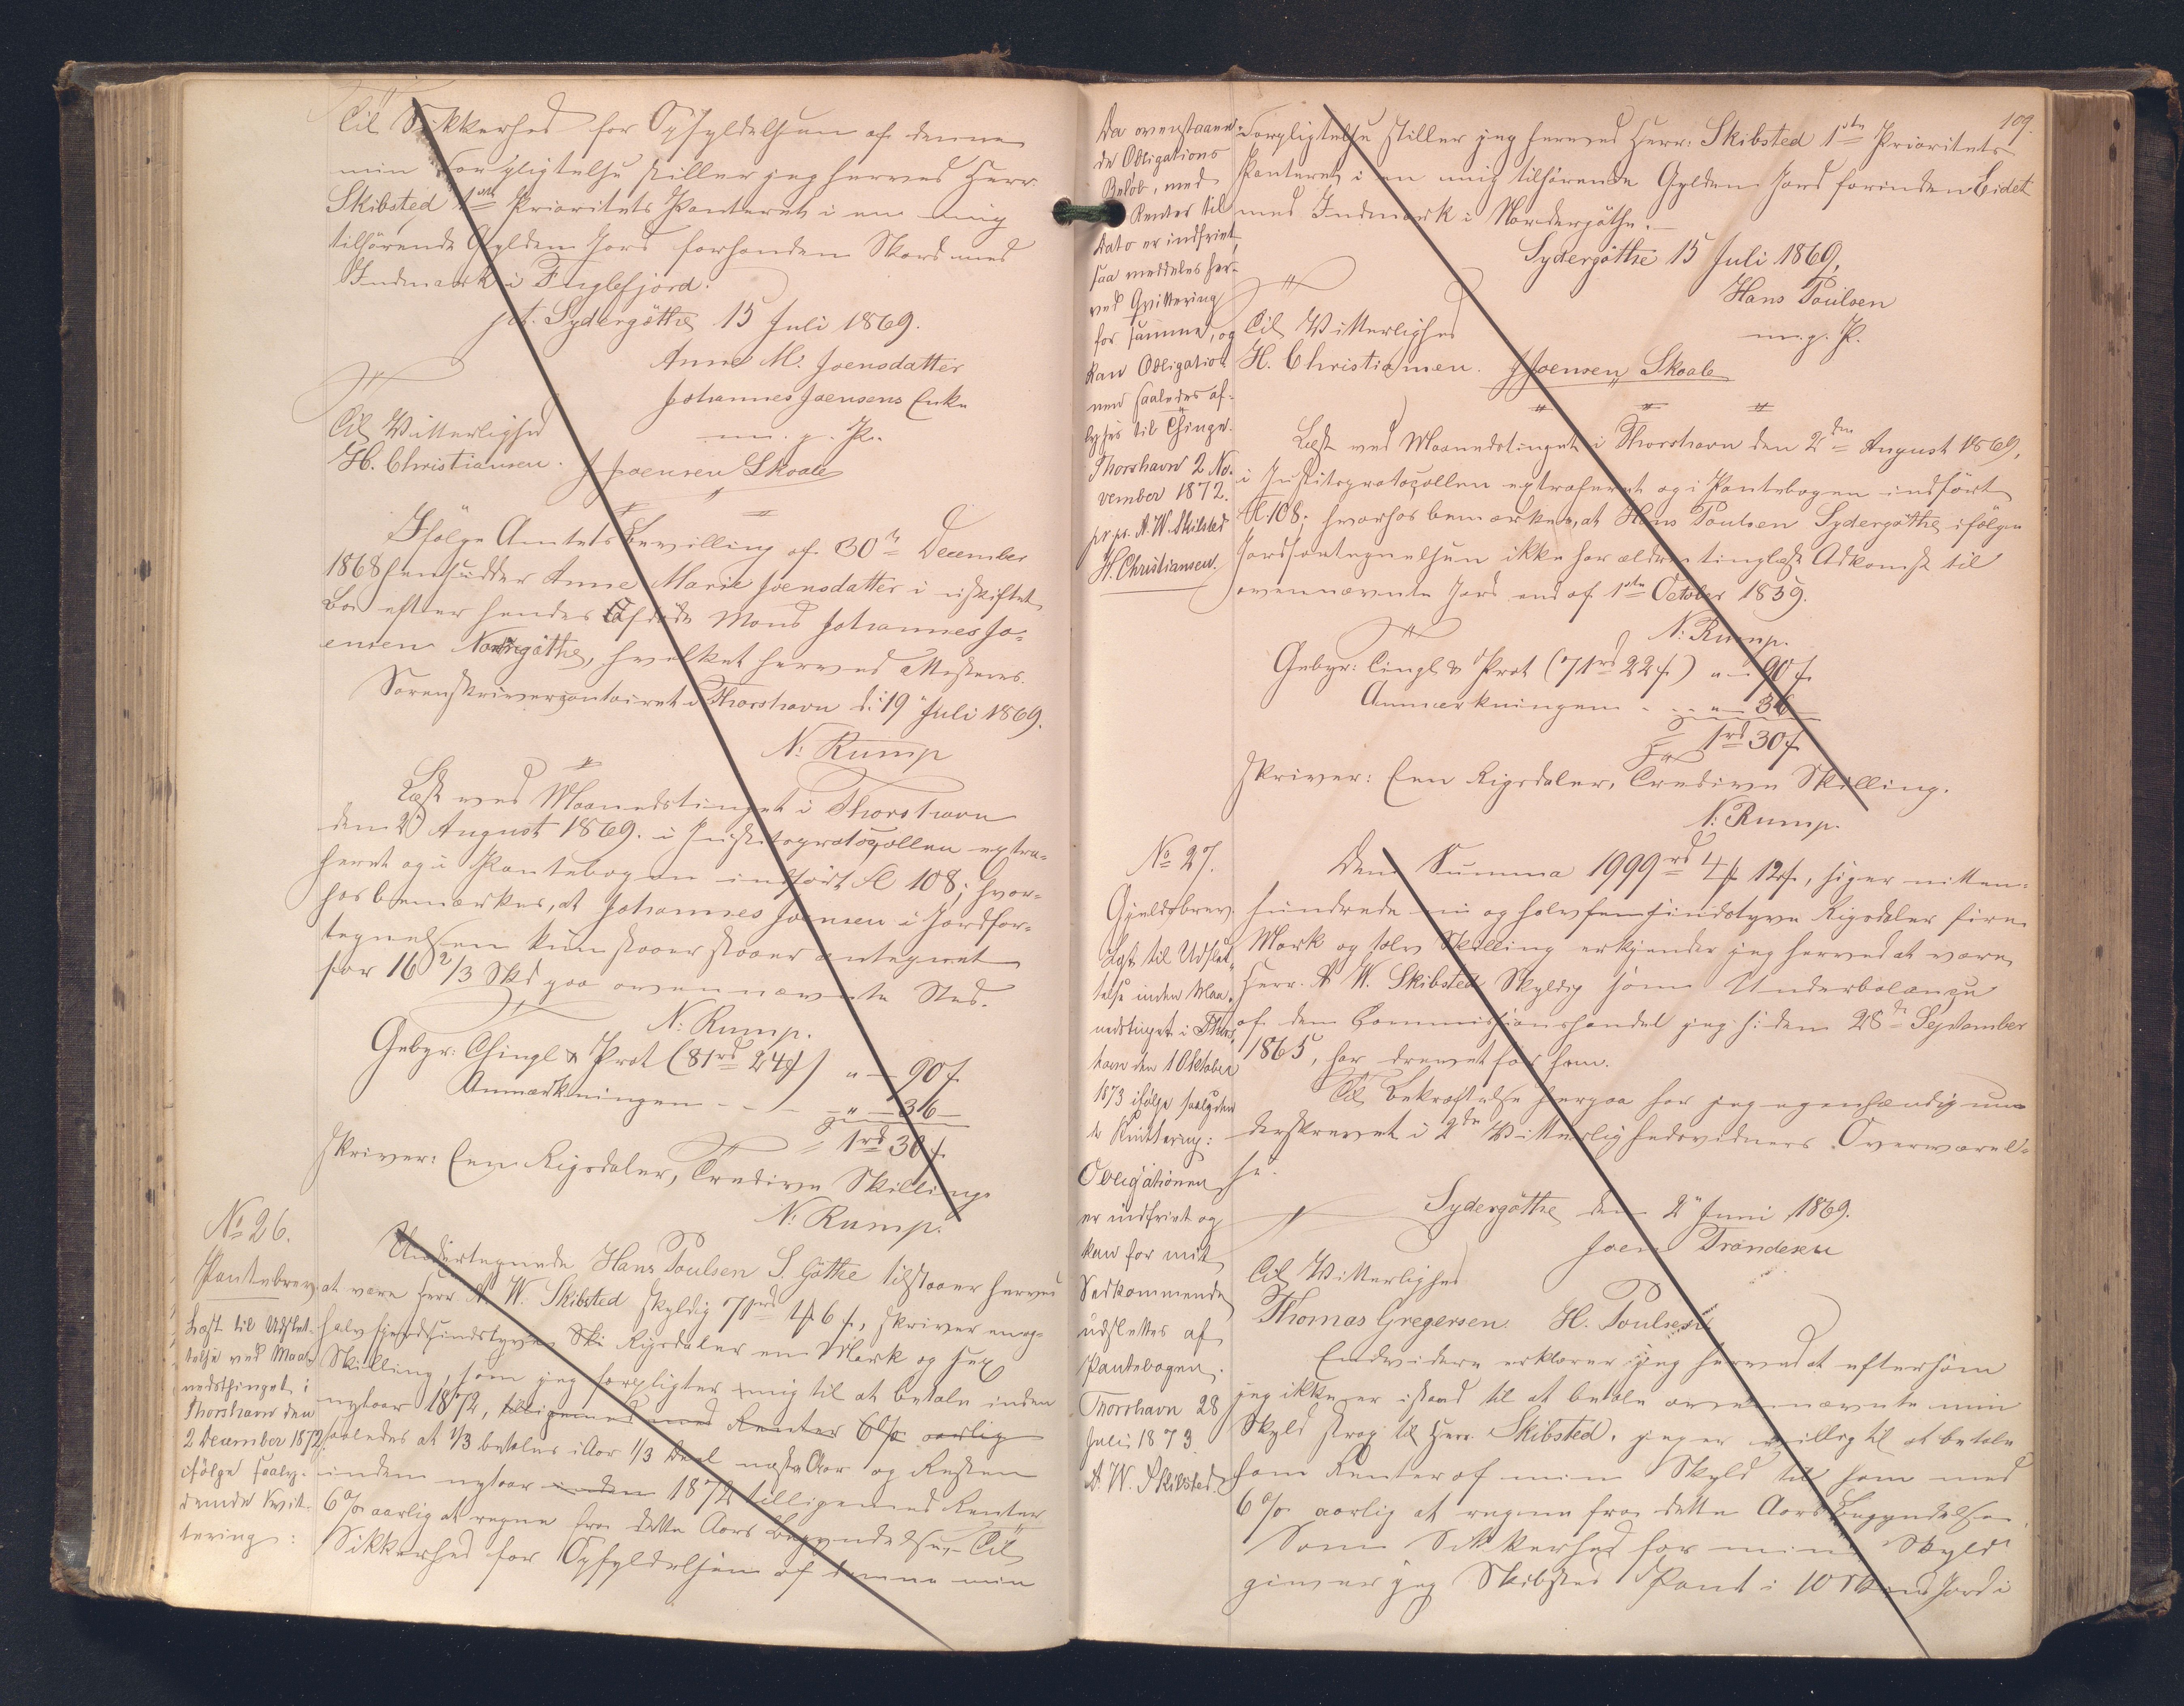 Til Sikkerhed for Opfyldelsen af denne
min Forpligtelse stiller jeg herved Herr
Skibsted 1ste Prioritets Panteret i en mig
tilhørende Gylden Jord forhonden Skard med
Indmark i Fuglefjord.
pt. Sydergöthe 15 Juli 1869.
Anne M. Joensdatter
Johannes Joensens Enke
m. p. P.
Til Vitterlighed
H. Christiansen. J Joensen Skaale
Ifölge Amtets Bevilling af 30te December
1868 hensidder Anne Marie Joensdatter i uskiftet
Bo efter hendes afdøde Mand Johannes Jo-
ensen Nordregöthe, hvilket herved attesteres.
Sorenskrivercontoiret i Thorshavn d: 19 Juli 1869.
N: Rump
Læst ved Maanedstinget i Thorshavn
den 2 August 1869. i Justitsprotocollen extra-
heret og i Pantebogen indført fl 108; hvor-
hos bemærkes, at Johannes Joensen i Jordfor-
tegnelsen kun staaer staaer antegnet
for 16 2/3 Skd paa ovennævnte Sted.
N: Rump.
Gebyr: Thingl & Prot (81rd 24s) " — 90 s.
Anmærkningen - - - " — 36 —
= 1rd 30 s.
skriver: Een Rigsdaler, Tredive Skilling.
N: Rump.
No 26.
Pantebrev
Læst til Udslet-
telse ved Maa-
nedsthinget i
Thorshavn den
2 December 1872
ifölge saaly-
dende Kvit-
tering:
Undertegnede Hans Poulsen S. Göthe tilstaaer herved
at være Herr A. W. Skibsted skyldig 71rd 1 Mk 6 s, skriver en og
halvfjerdsindstyve Ski Rigsdaler en Mark og sex
Skilling, som jeg forpligter mig til at betale inden
nytaar 1872, tilligemed med Renter 6% aarlig
saaledes at 1/3 betales i Aar 1/3 Deel næste Aar og Resten
inden nytaar inden 1872 tilligemed Renter
6% aarlig at regne fra dette Aars Begyndelse. - Til
Sikkerhed for Opfyldelsen af denne min
109.
Da ovenstaaen-
de Obligations
Beløb, med
Renter til
Dato er indfriet,
saa meddeles her-
ved Qvittering
for samme, og
kan Obligatio-
nen saaledes af-
lyses til Thinge.
Thorshavn 2 No-
vember 1872.
pr. pr. A. W. Skibsted
H. Christiansen.
Forpligtelse stiller jeg herved Herr: Skibsted 1ste Prioritets
Panteret i en mig tilhørende Gylden Jord forinden Eidet
med Indmark i Nordergöthe.
Sydergöthe 15 Juli 1869,
Hans Poulsen
m. p. P.
Til Vitterlighed
H. Christiansen. J Joensen Skaale
Læst ved Maanedstinget i Thorshavn den 2den August 1869,
i Justitsprotocollen extraheret og i Pantebogen indført
fl. 108; hvorhos bemærkes, at Hans Poulsen Sydergöthe ifölge
Jordfortegnelsen ikke har ældre tinglæst Adkomst til
ovennævnte Jord end af 1ste October 1839.
N: Rump.
Gebyr: Tingl & Prot (71rd 22 s) " — 90 s.
Anmærkningen - - - " — 36 —
= 1rd 30 s.
skriver: Een Rigsdaler, Tredive Skilling.
N: Rump.
No 27.
Gjeldsbrev.
Læst til Udslet-
telse inden Maa-
nedstinget i Thors-
havn den 1 Oktober
1873 ifölge saalyden-
de Kvittering:
Obligationen
er indfriet og
kan for mit
Vedkommende
udslettes af
Pantebogen.
Thorshavn 28
Juli 1873
A. W. Skibsted
Den Summa 1999rd 4 Mk 12 s, siger nitten-
hundrede ni og halvfemsindstyve Rigsdaler fire
Mark og tolv Skilling erkjender jeg herved at være
Herr. A W. Skibsted Skyldig som Underbalance
af den Commissionshandel jeg siden 28de September
1865, har drevet for ham.
Til Bekræftelse herpaa har jeg egenhændig un-
derskrevet i 2de Vitterlighedsvidners Overværel-
se.
Sydergöthe den 2 Juni 1869.
Joen Trondesen
Til Vitterlighed
Thomas Gregersen. H. Poulsen
Endvidere erklærer jeg herved at eftersom
jeg ikke er istand til at betale ovennævnte min
Skyld strax til Herr. Skibsted, jeg er villig til at betale
ham Renter af min Skyld til ham med
6% aarlig at regne fra dette Aars Begyndelse.
Som Sikkerhed for min Skyld
giver jeg Skibsted Pant i 10 Skinds Jord i